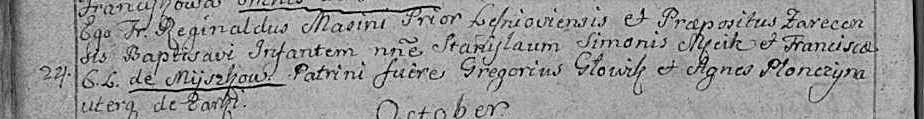 Ego Fr. Reginaldus Masini Prior Lesnioviensis et Præpositus Zarecen
sis Baptisavi Infantem nñe Stanislaum Simonis Męcik et Franciscæ
22. C. L. de Myszkow. Patrini fuêre Gregorius Głowik et Agnes Płonczyna
uterq de Parki.
October